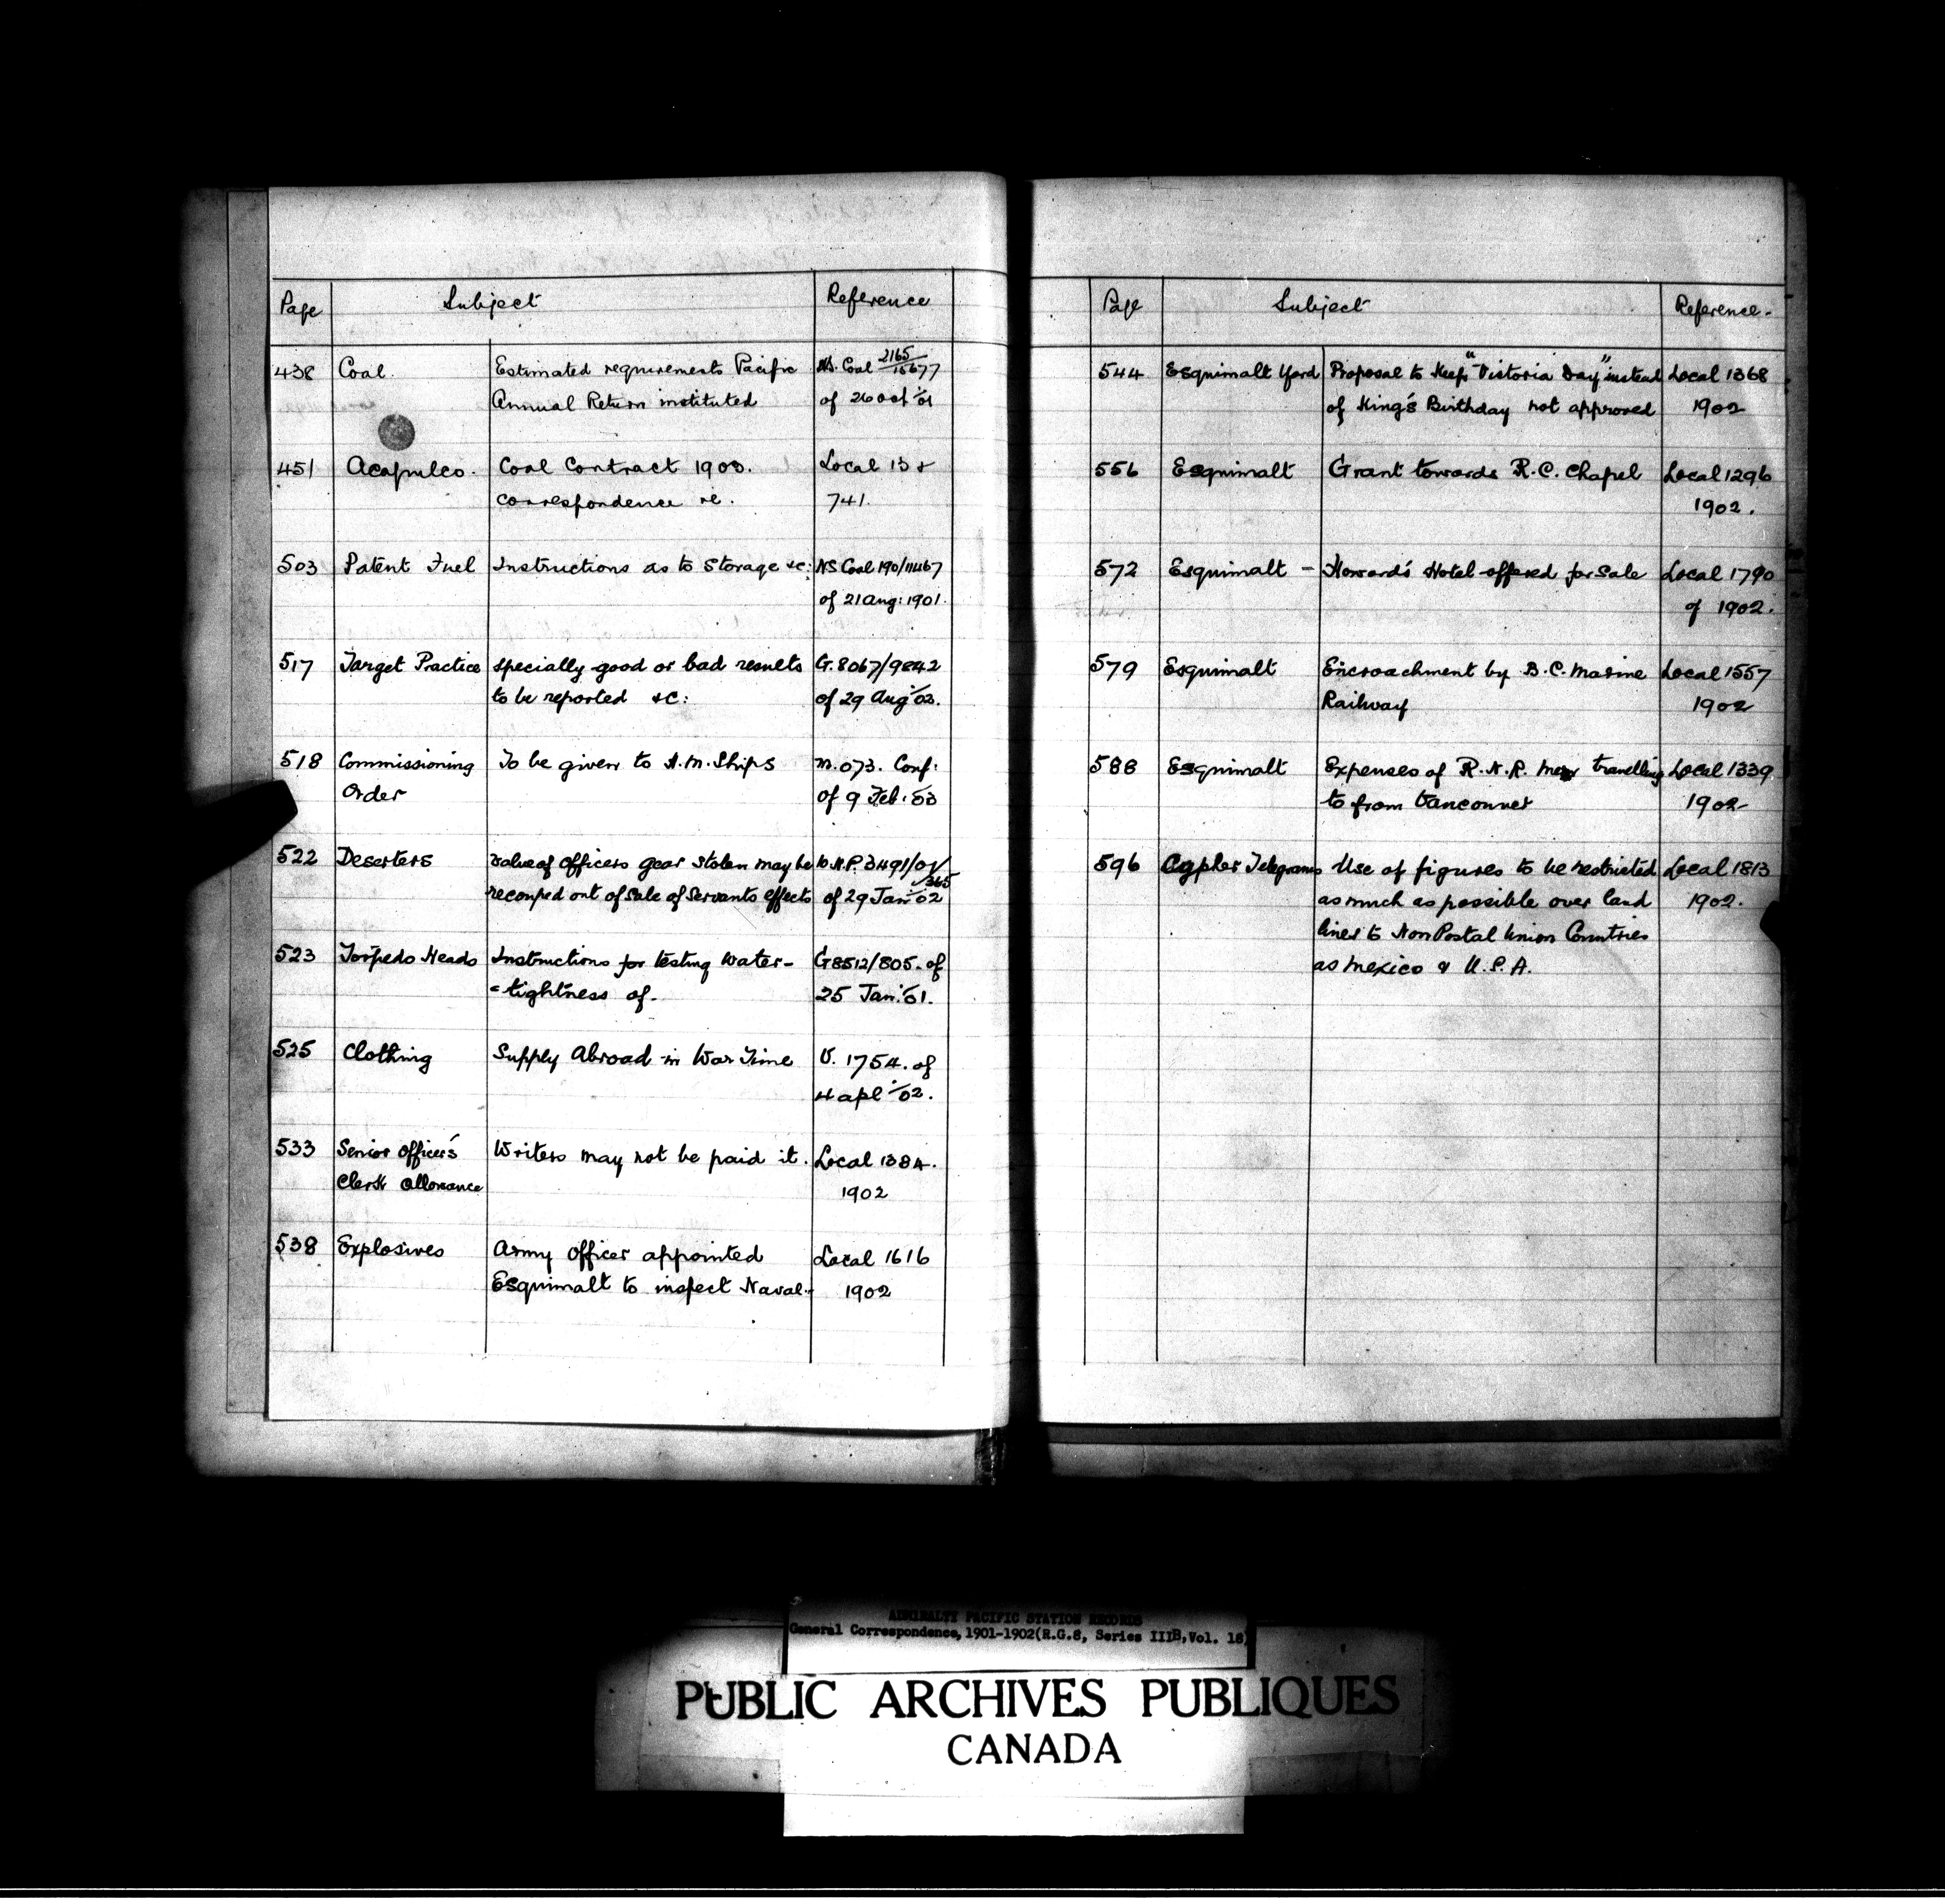 Page Subject Reference
438 Coal. Estimated requirements Pacific NS. Coal 2165/15677
Annual Return instituted of 26 Oct '01
451 Acapulco. Coal Contract 1903. Local 13 &
correspondence re. 741.
503 Patent Fuel Instructions as to Storage &c: NS Coal 190/11467
of 21 Aug: 1901.
517 Target Practice specially good or bad results G. 8067/9842
to be reported &c: of 29 Aug '03.
518 Commissioning To be given to H.M. Ships M. 073. Conf:
Order of 9 Feb: '03
522 Deserters value of officers gear stolen may be N.P. 3491/01/365
recouped out of sale of Servants effects of 29 Jan: '02
523 Torpedo Heads Instructions for testing water-
G8512/805. of
-tightness of. 25 Jan: '01.
525 Clothing Supply Abroad in War Time V. 1754. of
4 apl '02.
533 Senior Officer's Writers may not be paid it. Local 1384.
Clerk Allowance 1902
538 Explosives Army Officer appointed Local 1616
Esquimalt to inspect Naval- 1902
Page Subject Reference-
544 Esquimalt Yard Proposal to keep "Victoria Day" instead Local 1368
of King's Birthday not approved 1902
556 Esquimalt Grant towards R.C. Chapel Local 1296
1902.
572 Esquimalt - Howard's Hotel offered for Sale Local 1790
of 1902.
579 Esquimalt Encroachment by B.C. Marine Local 1557
Railway 1902
588 Esquimalt Expenses of R.N.R. Men travelling Local 1339
to from Vancouver 1902
596 Cypher Telegrams Use of figures to be restricted Local 1813
as much as possible over land 1902.
lines to Non Postal Union Countries
as Mexico & U.S.A.
ADMIRALTY PACIFIC STATION RECORDS
General Correspondence, 1901-1902(R.G.8, Series IIIB,Vol. 18)
PUBLIC ARCHIVES PUBLIQUES
CANADA